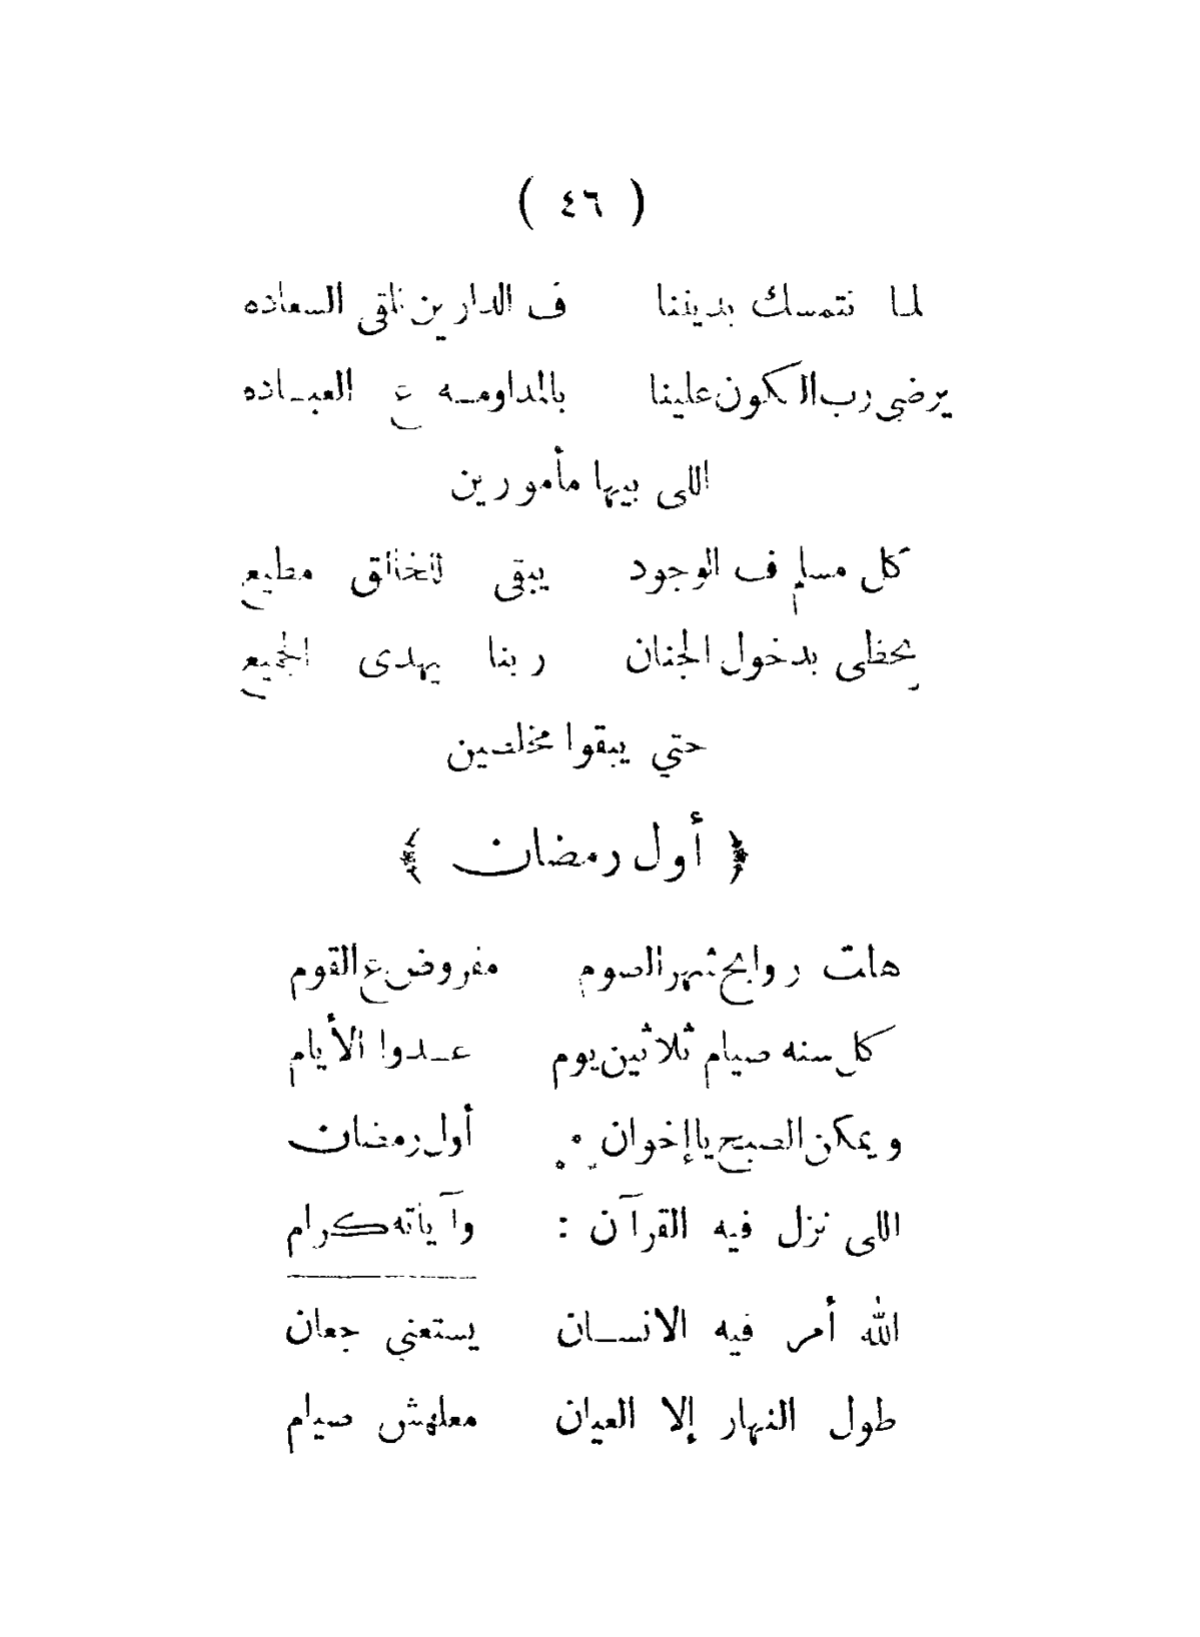 ( ٤٦ )
لما نتمسك بديننا ف الدارين نلقى السعاده
يرضى رب الكون علينا بالمداومه ع العباده
اللى بيها مأمورين
كل مسلم ف الوجود يبقى للخالق مطيع
يحظى بدخول الجنان ربنا يهدى الجميع
حتي يبقوا مخلصين
﴿ أول رمضان ﴾
هلت روايح شهر الصوم مفروض ع القوم
كل سنه صيام ثلاثين يوم عدوا الأيام
ويمكن الصبح يا إخوان أول رمضان
اللى نزل فيه القرآن : وآياته كرام
الله أمر فيه الانسان يستعني جعان
طول النهار إلا العيان معلهش صيام